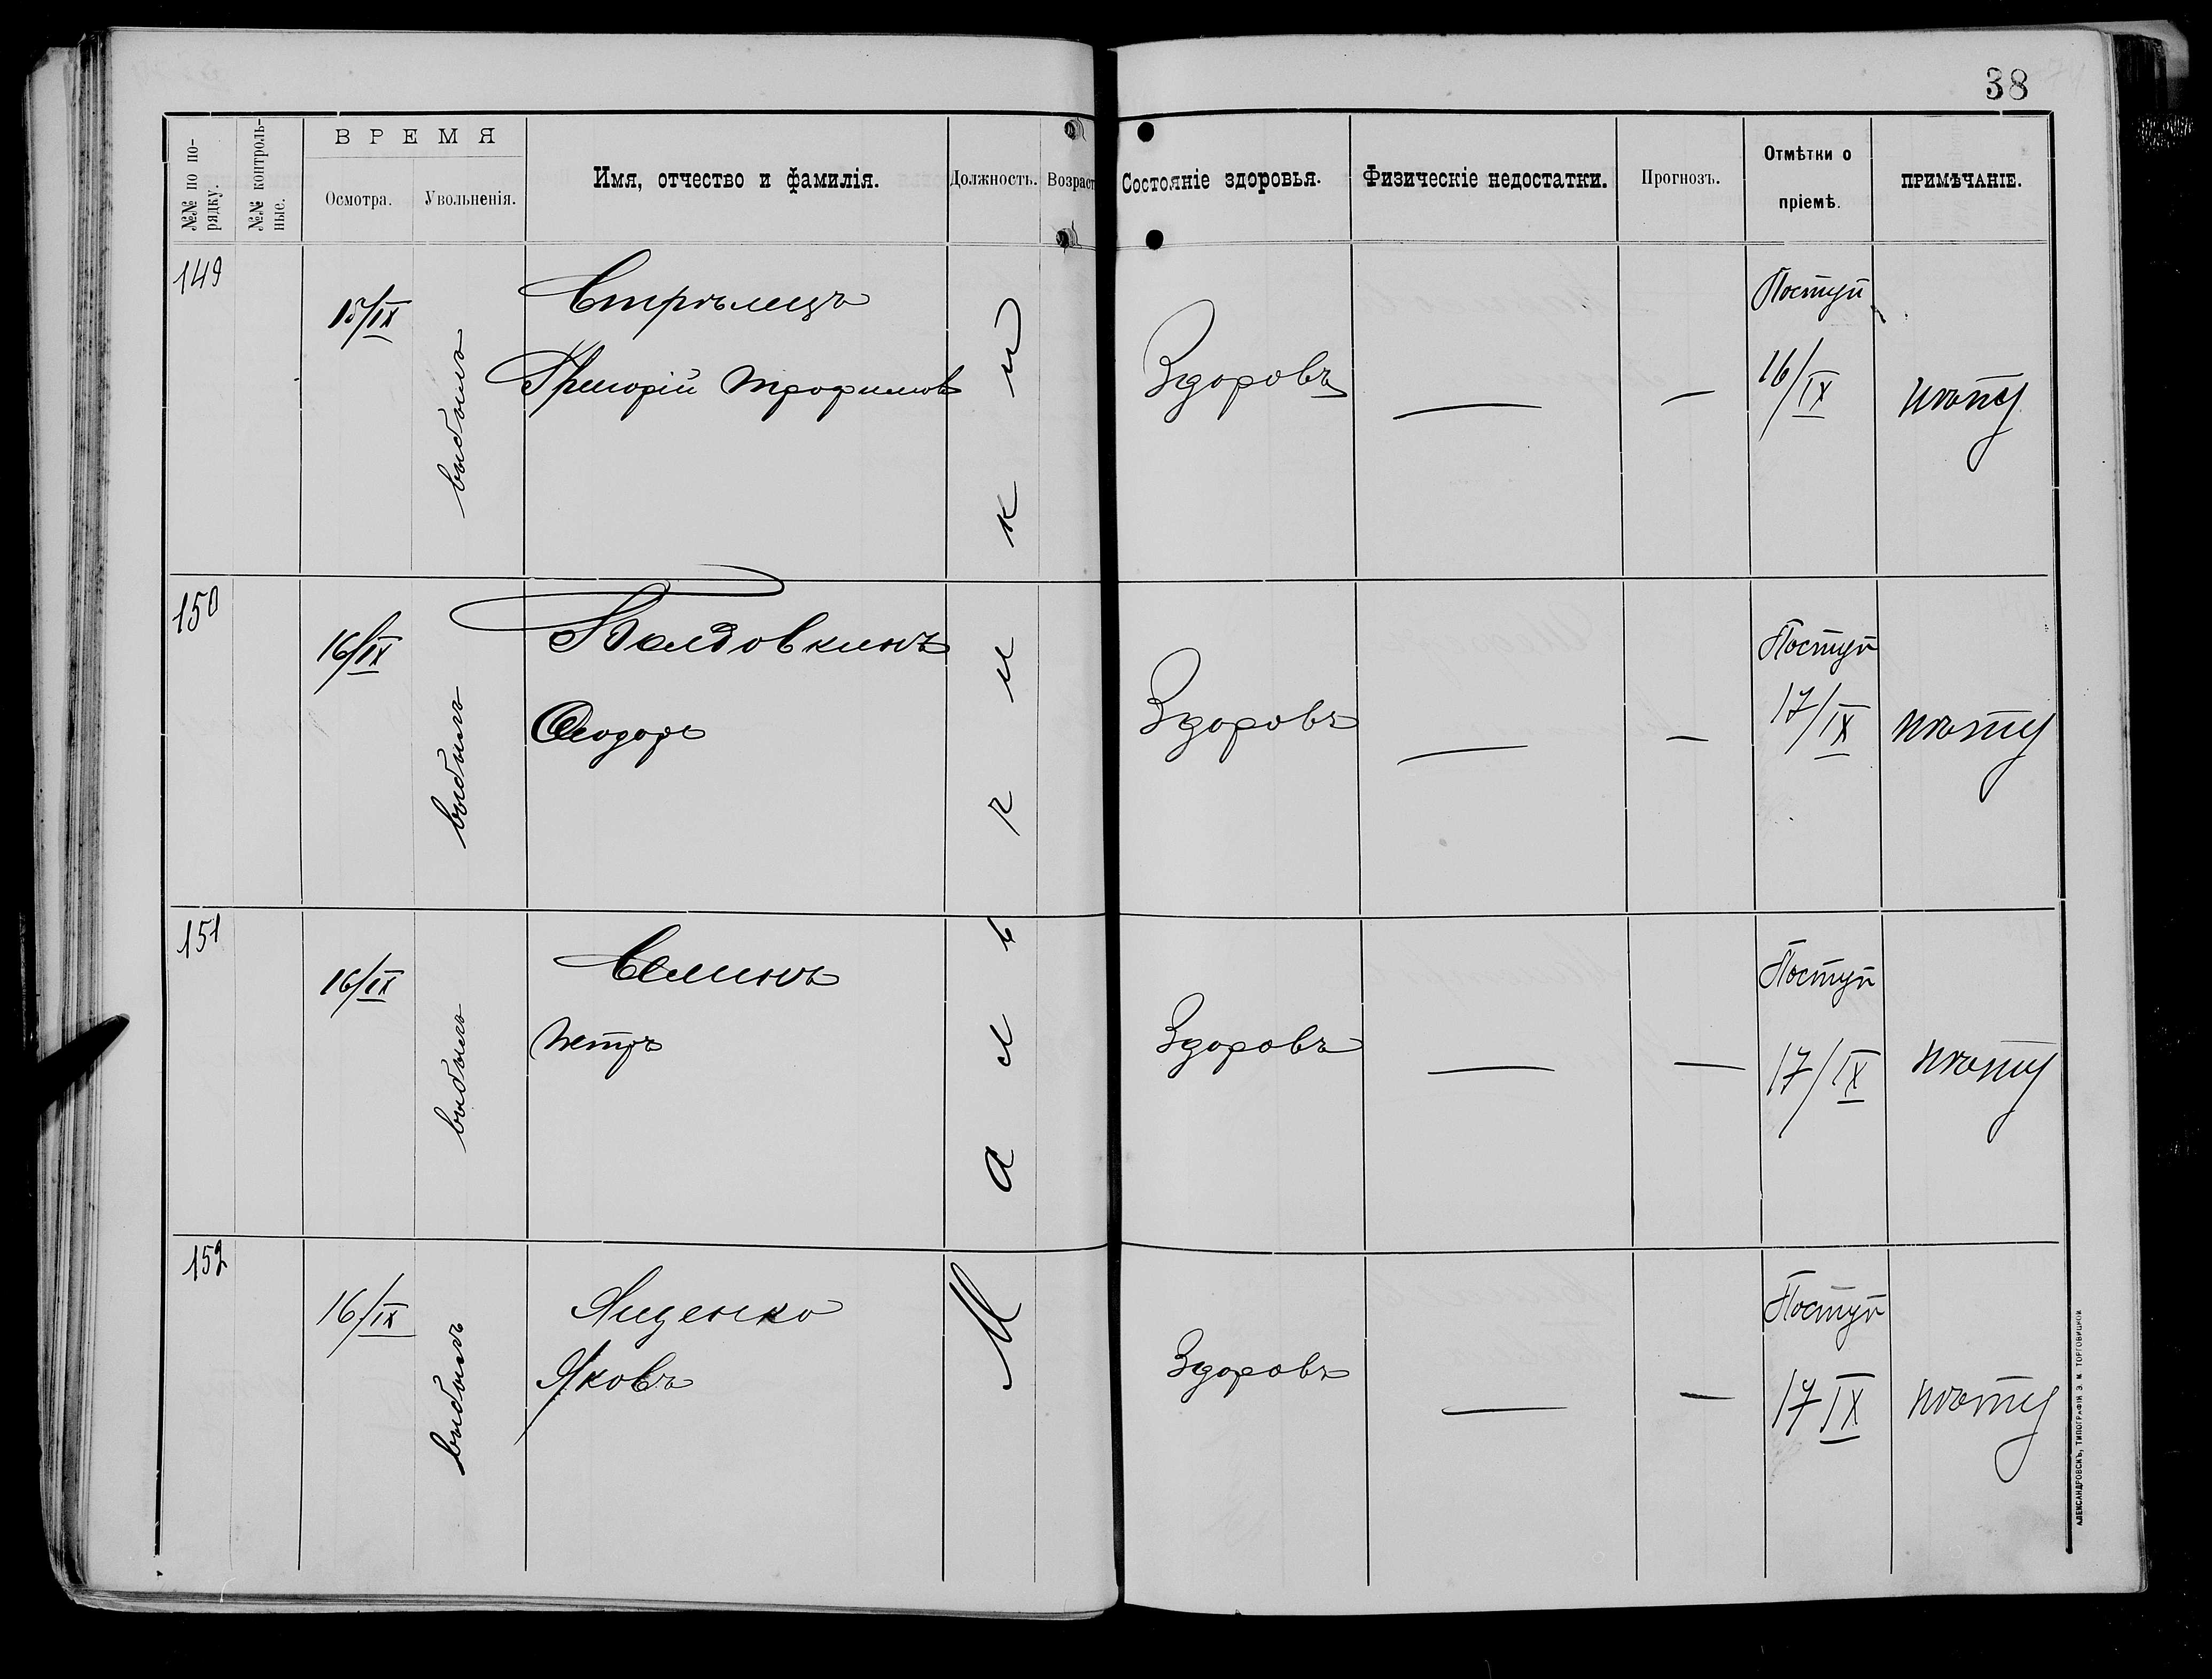 38
№№ по по-
рядку.
№№ контроль-
ные.
ВРЕМЯ
Осмотра.
Увольненія.
Имя, отчество и фамилія.
Должность.
Возраст
Состояніе здоровья.
Физическіе недостатки.
Прогнозъ.
Отмѣтки о
пріемѣ.
ПРИМѢЧАНІЕ.
149
15/IX
выбылъ
Стрѣлецъ
Григорій Трофимовъ
Здоровъ
—
—
Поступ
16/IX
150
16/IX
выбылъ
Болдовкинъ
Ѳеодоръ
Здоровъ
—
—
Поступ
17/IX
151
16/IX
выбылъ
Селинъ
Петръ
Здоровъ
—
—
Поступ
17/IX
152
16/IX
выбылъ
Яценко
Яковъ
Мальчики
Здоровъ
—
—
Поступ
17 IX
АЛЕКСАНДРОВСКЪ, ТИПОГРАФІЯ Э. М. ТОРГОВИЦКОЙ